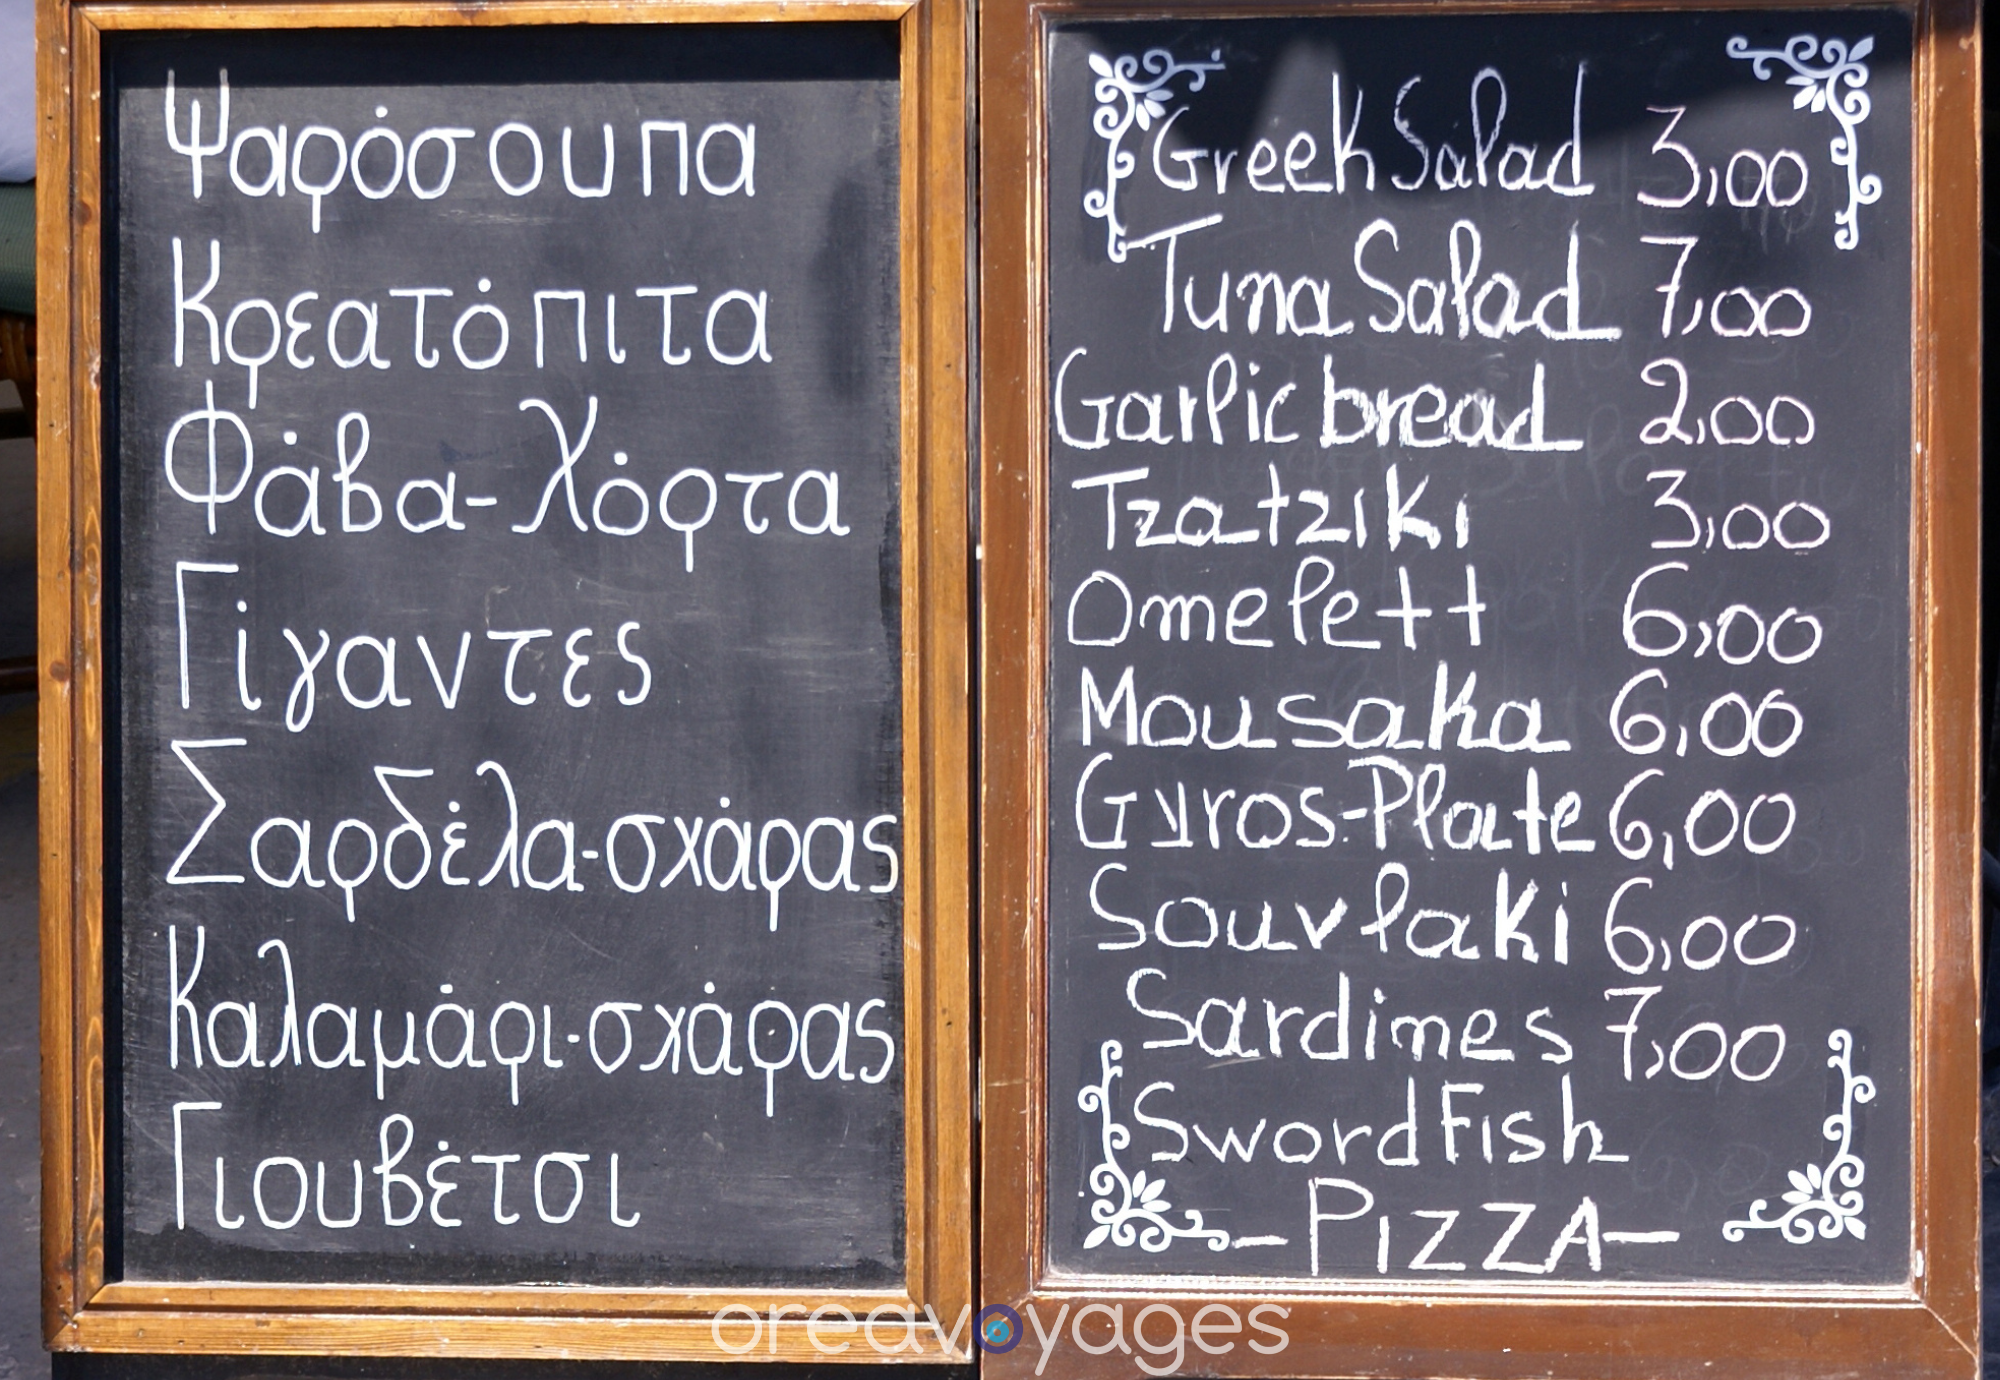 Ψαρόσουπα
Κρεατόπιτα
Φάβα-Χόρτα
Γίγαντες
Σαρδέλα-σχάρας
Καλαμάρι-σχάρας
Γιουβέτσι
Greek Salad 3,00
Tuna Salad 7,00
Garlic bread 2,00
Tzatziki 3,00
Omelett 6,00
Mousaka 6,00
Gyros-Plate 6,00
Souvlaki 6,00
Sardines 7,00
SwordFish
-PIZZA-
oreavoyages